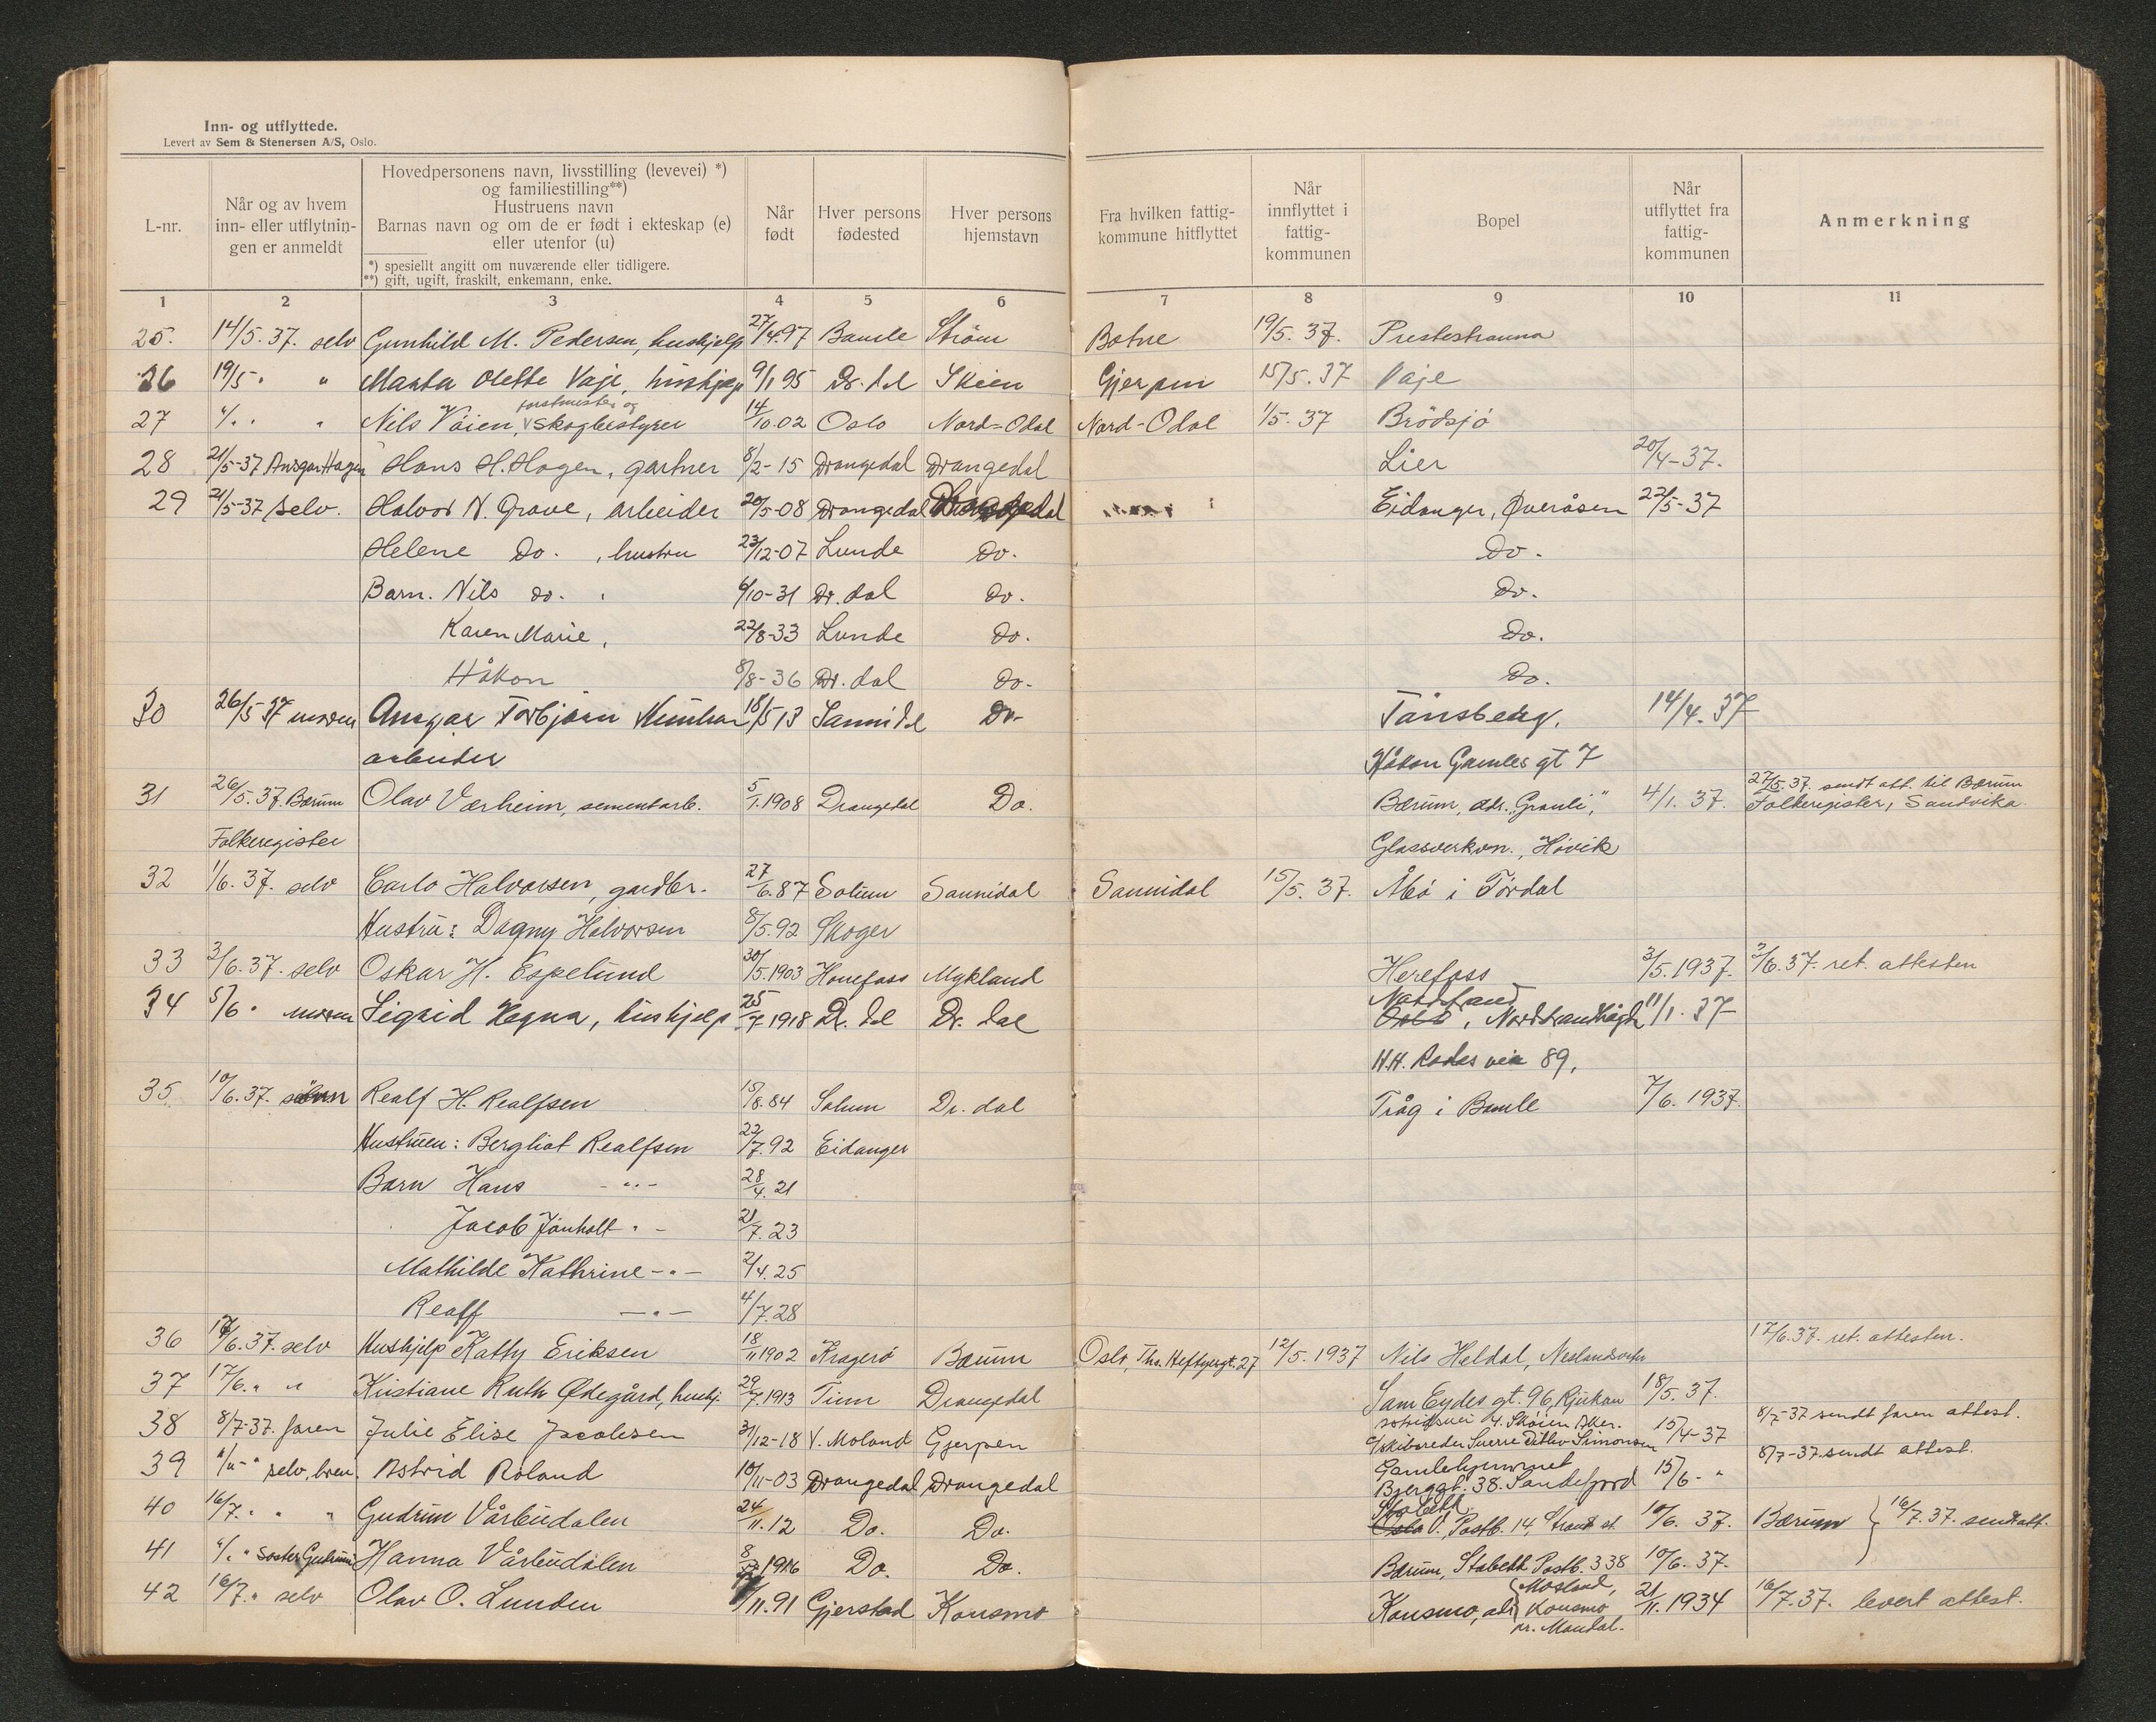 Inn- og utflyttede.
Levert av Sem & Stenersen A/S, Oslo.
L-nr. Når og av hvem inn- eller utflytnin- gen er anmeldt Hovedpersonens navn, livsstilling (levevei) *) og familiestilling**) Hustruens navn Barnas navn og om de er født i ekteskap (e) eller utenfor (u) *) spesiellt angitt om nuværende eller tidligere. **) gift, ugift, fraskilt, enkemann, enke. Når født Hver persons fødested Hver persons hjemstavn Fra hvilken fattig- kommune hitflyttet Når innflyttet i fattig- kommunen Bopel Når utflyttet fra fattig- kommunen Anmerkning
1 2 3 4 5 6 7 8 9 10 11
25. 14/5. 37. selv Gunhild M. Pedersen, hushjelp 27/4.97 Bamle Strøm Botne 19/5. 37. Prestestranna
26 19/5 " " Marta Olette Vaje, hushjelp 9/1 95 Dr.dal Skien Gjerpen 15/5. 37 Vaje
27 "/. " " Nils Vöien, forstmester og skogbestyrer 14/10.02 Oslo Nord-Odal Nord-Odal 1/5. 37 Brödsjö
28 21/5-37 Ansgar Hagen Hans H. Hagen, gartner 8/2-15 Drangedal Drangedal Lier 20/4-37.
29 21/5-37 selv. Halvor N. Grave, arbeider 20/5-08 Drangedal Drangedal Eidanger, Øveråsen 22/5-37
Helene Do. , hustru 23/12-07 Lunde Do. Do.
Barn. Nils do. 6/10-31 Dr. dal Do. Do.
Karen Marie, 22/8-33 Lunde Do. Do.
Håkon 8/8-36 Dr. dal Do. Do.
30 26/5 37 moren Ansgar Torbjørn 18/5 13 Sannidal Do- Tønsberg. 14/4. 37
arbeider Håkon Gamles gt 7
31 26/5. 37. Bærum Olav Værheim, sementarb. 5/1.1908 Drangedal Do. Bærum, adr. "Granli," 4/1. 37. 27/5. 37. sendt att. til Bærum Folkeregister, Sandvika.
Folkeregister Glassverkvn., Høvik
32 1/6. 37. selv Carlo Halvorsen, gardbr. 27/6.87 Solum Sannidal Sannidal 15/5. 37. Åbö i Tördal
Hustru: Dagny Halvorsen 8/5.92 Skoger
33 3/6. 37. selv Oskar H. Espelund 30/5.1903 Hønefoss Mykland Herefoss 3/5.1937. 3/6.37. ret. attesten
34 5/6 " moren Sigrid Hegna, hushjelp 25/7 1918 Dr. dal Dr. dal Nordstrand Oslo, Nordstrandhøgda 11/1. 37
H.H. Rodes vei 89,
35 10/6. 37. Realf H. Realfsen 15/8.84 Solum Dr. dal Tråg i Bamle 7/6. 1937.
Hustruen: Bergliot Realfsen 22/7.92 Eidanger
Barn Hans - " - 28/4. 21
Jacob Jönholt " - 21/7. 23
Mathilde Kathrine - " - 2/4. 25
Realf - " - 4/7.28
36 17/6. 37. selv Hushjelp Katty Eriksen 18/11 1902 Kragerø Bærum Oslo, Ths. Heftyesgt. 27 12/5. 1937 Nils Heldal, Neslandsvatn 17/6.37. ret. attesten.
37 17/6. " " Kristiane Ruth Ødegård, hushj. 29/7.1913 Tinn Drangedal Sam Eydes gt. 96, Rjukan 18/5. 37.
38 8/7-37. faren Julie Elise Jacobsen 31/12-18 V. Moland Gjerpen 4. Skøien Aker. c/skibsreder Sverre Ditlev Simonsen 15/4-37 8/7-37 sendt faren attest.
39 "/"-" selv, brev. Astrid Roland 10/11-03 Drangedal Drangedal Gamlehjemmet Bjerggt. 38. Sandefjord 15/6- " 8/7-37 sendt attest.
40 16/7. " " " Gudrun Vårbudalen 24/11.12 Do. Do. Stabekk Oslo V. Postb. 14, Strand st. 10/6. 37. Bærum } 16/7. 37. sendt att.
41 "/. " søster Gudrun Hanna Vårbudalen 8/1916 Do. Do. Bærum, Stabekk Postb. 338 10/6. 37.
42 16/7. " selv Olav O. Lunden /11.91 Gjerstad Konsmo Konsmo, adr. { Mosland, Konsmo pr. Mandal. 21/11. 1934 16/7.37. levert attest.